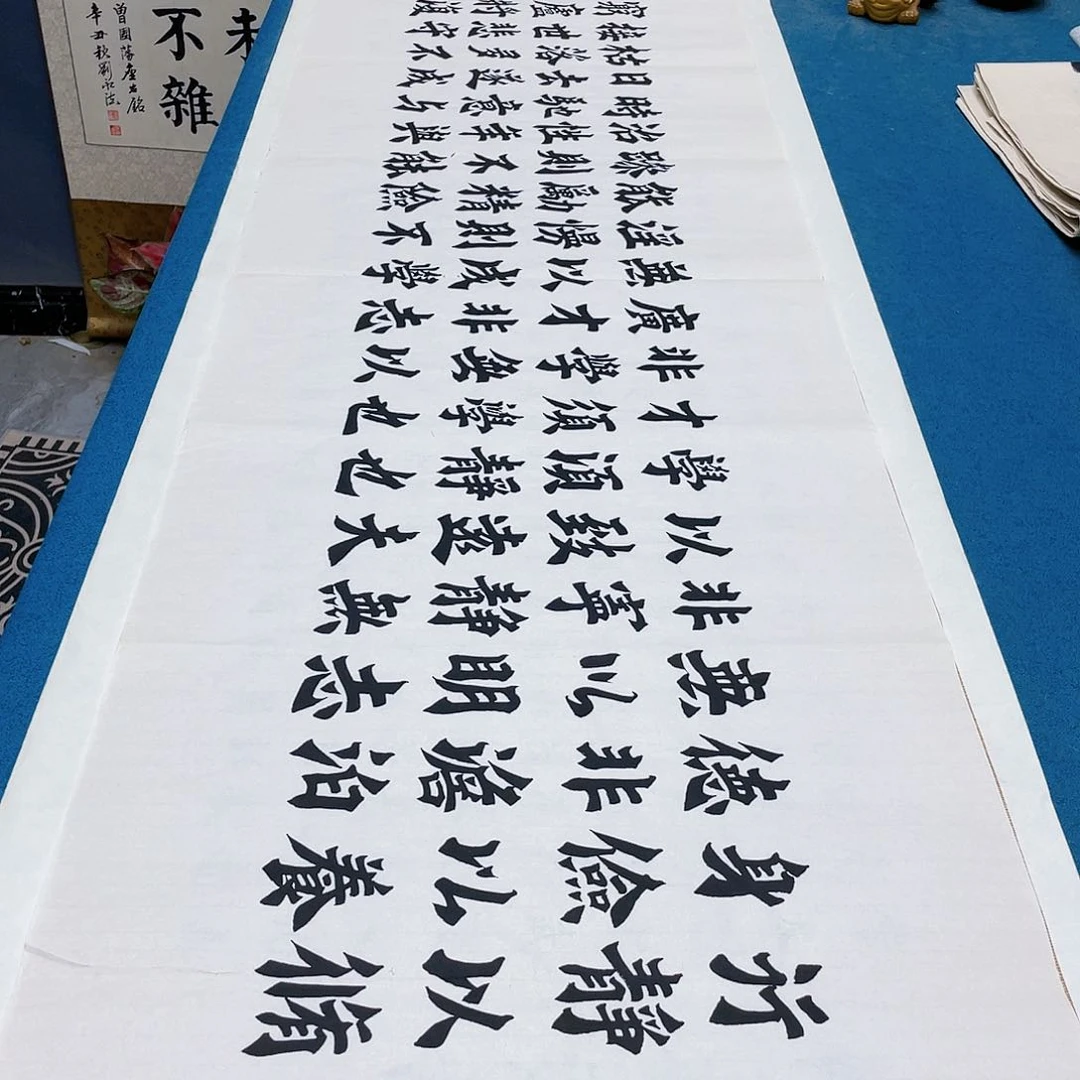 行靜以脩
身儉以養
德非澹泊
無以明志
非寧靜無
以致遠夫
學須靜也
才須學也
非學無以
廣才非志
無以成學
淫慢則不
能勵精險
躁則不能
冶性年與
時馳意與
日去遂成
枯落多不
接世悲守
窮廬將復
未
不雜
曾國藩座右銘
辛丑秋劉